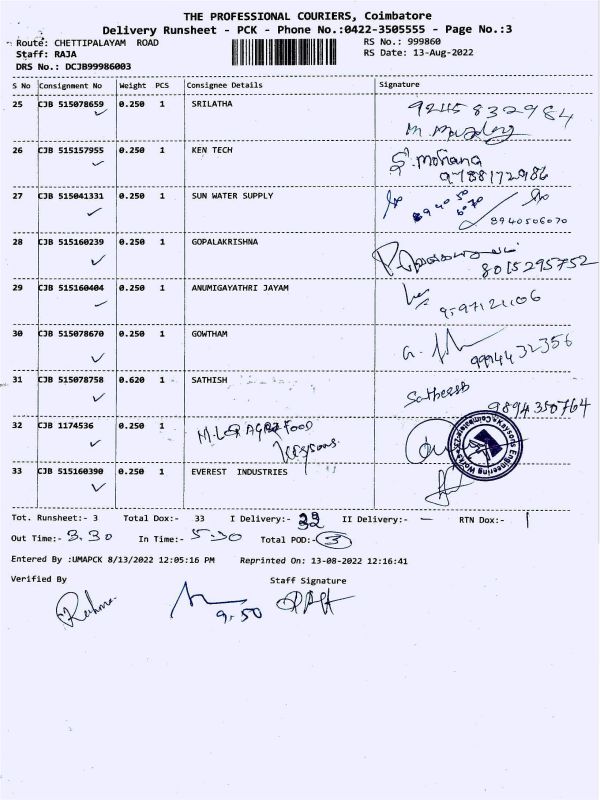 THE PROFESSIONAL COURIERS, Coimbatore
Delivery Runsheet - PCK - Phone No.:0422-3505555 - Page No.:3
Route: CHETTIPALAYAM ROAD RS No.: 999860
Staff: RAJA RS Date: 13-Aug-2022
DRS No.: DCJB99986003
S No Consignment No Weight PCS Consignee Details Signature
25 CJB 515078659 0.250 1 SRILATHA
26 CJB 515157955 0.250 1 KEN TECH S. Mohana
9788172986
27 CJB 515041331 0.250 1 SUN WATER SUPPLY
8940506070
28 CJB 515160239 0.250 1 GOPALAKRISHNA
8015295752
29 CJB 515160404 0.250 1 ANUMIGAYATHRI JAYAM
30 CJB 515078670 0.250 1 GOWTHAM
9994432356
31 CJB 515078758 0.620 1 SATHISH
9894350764
32 CJB 1174536 0.250 1 Food
Kaysons Engineering Works Coimbatore
33 CJB 515160390 0.250 1 EVEREST INDUSTRIES
Tot. Runsheet:- 3 Total Dox:- 33 I Delivery:- 32 II Delivery:- - RTN Dox:- 1
Out Time:- 3.30 In Time:- 5.30 Total POD:- 3
Entered By :UMAPCK 8/13/2022 12:05:16 PM Reprinted On: 13-08-2022 12:16:41
Verified By Staff Signature
9.50